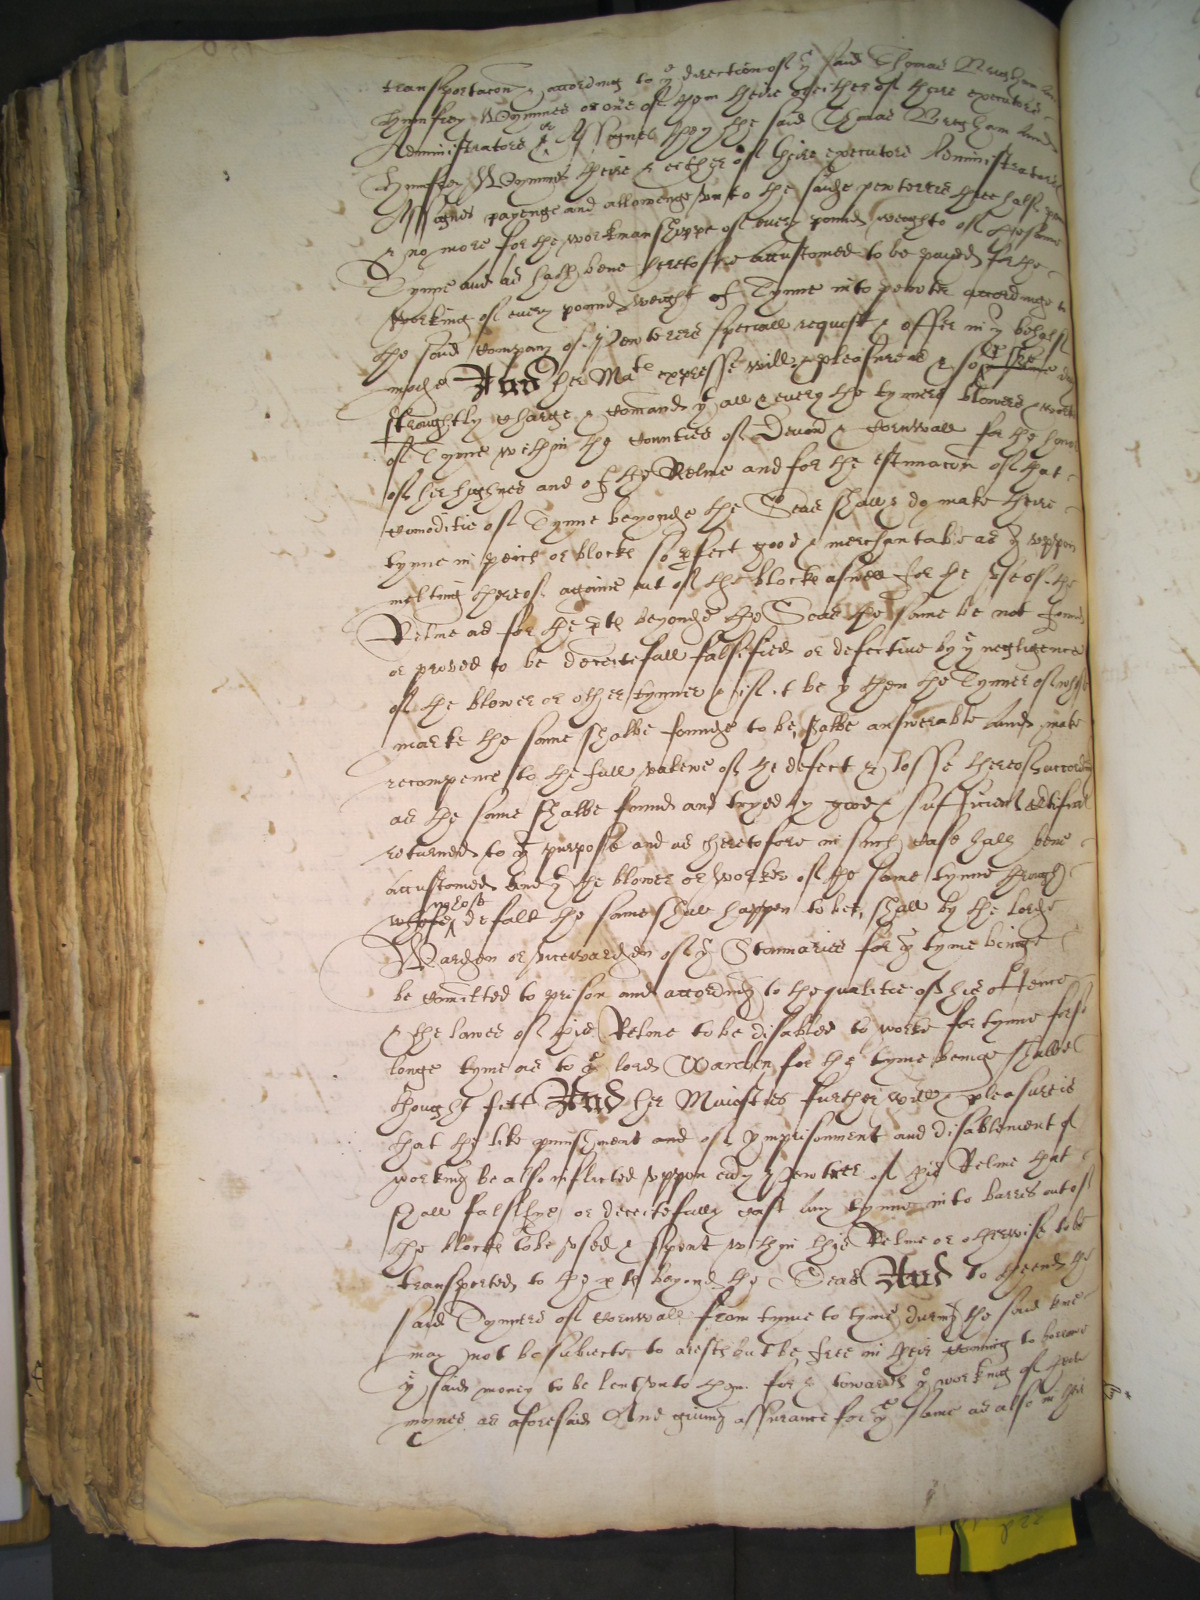 transportacon accordinge to ye direction of ye said Thomas Brigham and
Humfrey Wymmes or one of them theire or either of theire executors
Administrators or Assignes they the said Thomas Brigham and
Humfrey Wymmes theire & either of theire executors Administrators
Assignes payenge and allowenge unto the saide pewterers three halfe
& no more for the workmanshippe of every pound weighte of the same
Tynne and as hath bene heretofore accustomed to be payed for the
working of every pound weight of Tynne into pewter accordinge to
the said Company of Pewterers speciall request & offer in yt behalf
made And her Mate expresse will & pleasure is & so
straightly charge & comand yt all & every the tynners blowers &
of Tynne within the Counties of Devon & Cornwall for the honor
of her highnes and of the Relme and for the estimacon of that
comoditie of Tynne beyonde the Seas shall & do make theire
tynne in peice or blocke so pfect good & merchantable as yt uppon
melting thereof againe out of the blocke aswell for the use of the
Relme as for the pts beyonde the Seas the same be not found
or proved to be deceitefull falsefied or defective by ye negligence
of the blower or other tynner & if it be yt then the Tynner of whose
marke the same shalbe founde to be, shalbe answerable and make
recompence to the full valewe of the defect & losse thereof accordinge
as the same shalbe found and tryed by good & sufficient certificat
returned to yt purpose and as heretofore in such case hath bene
accustomed And yt the blower or worker of the same tynne through
whose whose defalt the same shall happen to bee, shall by the lorde
Warden or vicewarden of ye Stannaries for ye tyme beinge
be comitted to prison and accordinge to the qualitie of his offence
& the lawes of this Relme to be disabled to worke for tynne for so
longe tyme as to ye lord Warden for the tyme beinge shalbe
thought fitt And her Maiesties further will & pleasure is
that the like punishment and of ymprisonment and disablement of
working be also inflicted uppon evy Pewterer of this Relme that
shall falsefye or deceitefully cast any tynne into barres out of
the blocke to be used & spent within this Relme or otherwise to be
transported to the pts beyond the Seas And to the end the
said Tynners of Cornwall from tyme to tyme during the said tyme
may not be subiecte to arests but be free in their coming to borrowe
ye said money to be lent unto them for & towards ye working of their
mynes as aforesaid And giving assurance for ye same as also in their